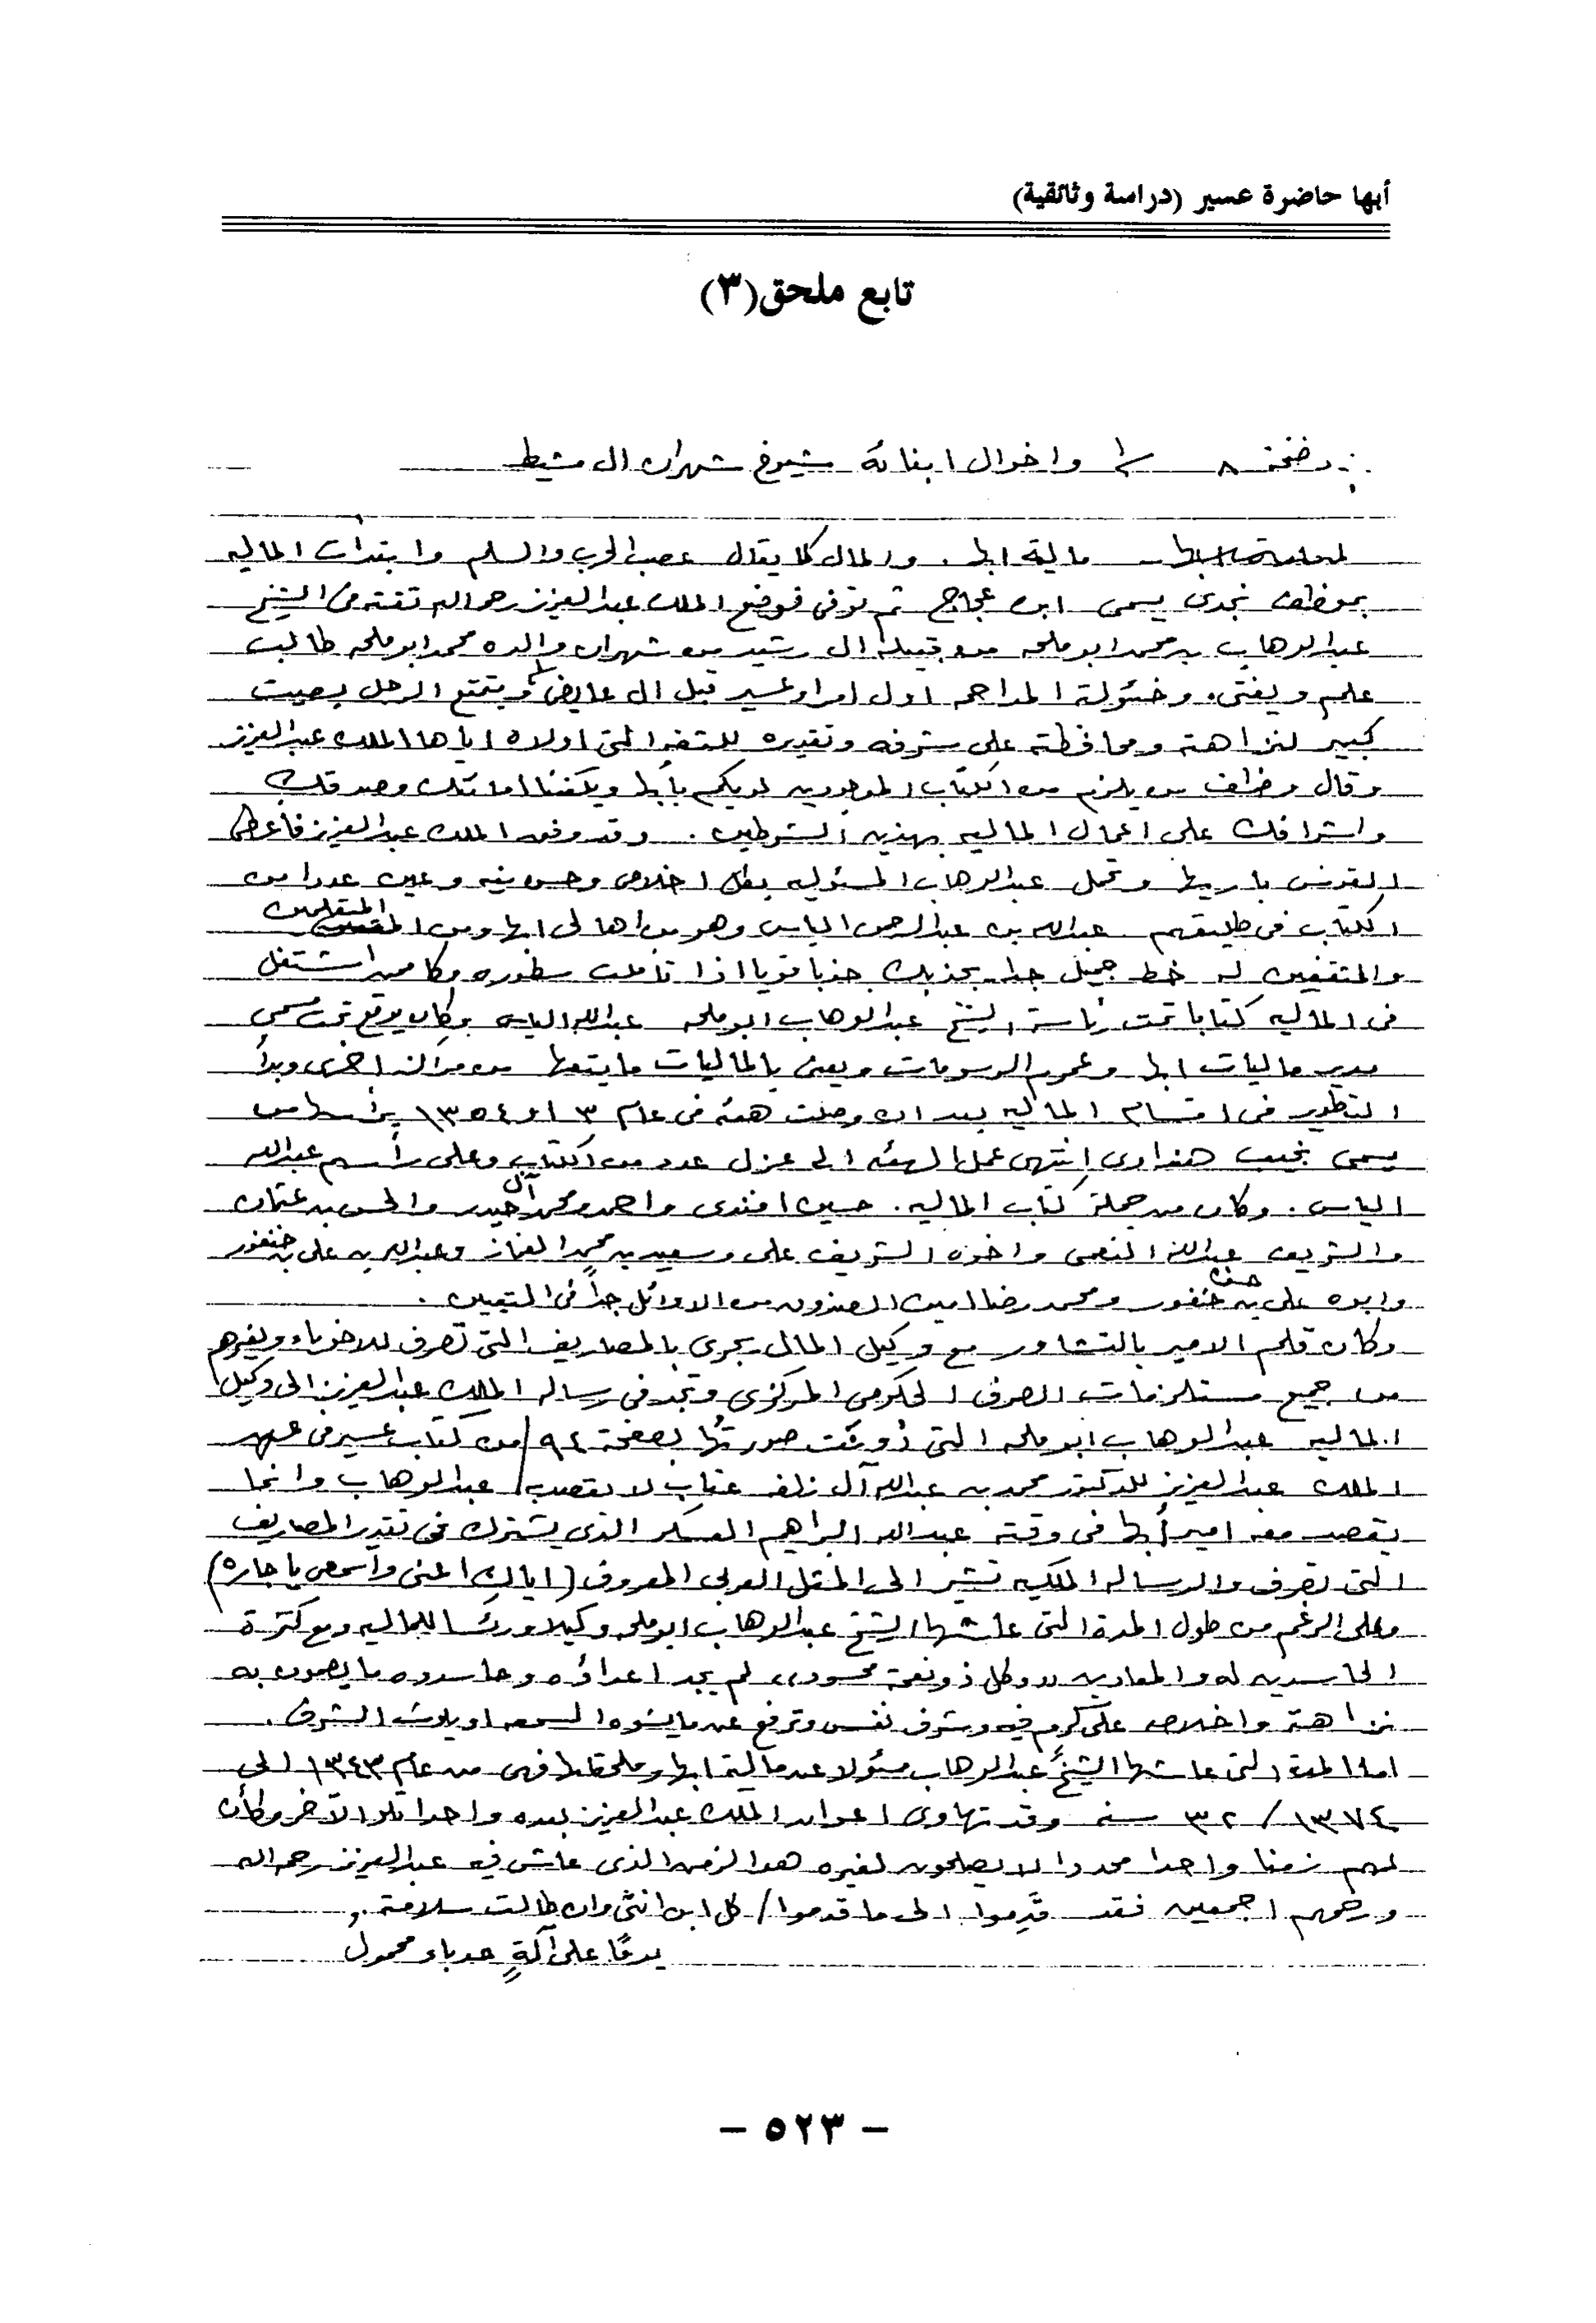 أبها حاضرة عسير (دراسة وثائقية)
تابع ملحق(٣)
واخوال ابنائه شيوخ شهران ال مشيط
مالية ابها. والمال كما يقال عصب الحرب والسلم وابتدأت الماليه
بموظف نجدى يسمى ابن عجاج ثم توفى فوضع الملك عبدالعزيز رحمه الله ثقته فى الشيخ
عبدالوهاب بن محمد ابو ملحه من قبيلة ال رشيد من شهران والده محمد ابو ملحه طالب
علم ويفتى. وخئولة المزاحمه اول امراء عسير قبل ال عايض ويتمتع الرجل بصيت
كبير لنزاهته ومحافظته على شرفه وتقديره للثقه التى اولاه اياها الملك عبدالعزيز
وقال وظف من يلزم من الكتاب الموجودين لديكم بأبها ويكفينا امانتك وصدقك
واشرافك على اعمال الماليه بهذين الشرطين. وقد وفق الملك عبدالعزيز فاعطى
القوس باريها وتحمل عبدالوهاب المسئوليه بكل اخلاص وحسن نيه وعين عددا من
الكتاب فى طليعتهم عبدالله بن عبدالرحمن الياس وهو من اهالى ابها ومن المتعلمين
والمثقفين له خط جميل جدا يجذبك جذبا قويا اذا تأملت سطوره وكان ممن اشتغل
فى الماليه كتابا تحت رئاسة الشيخ عبدالوهاب ابو ملحه عبدالله الياس وكان يوقع تحت مسمى
مدير ماليات ابها وعموم الرسومات ويعنى بالماليات ما يتبعها من مراكز اخرى وبدأ
التطور فى اقسام الماليه بعد ان وصلت هيئه فى عام ٣ او ١٣٥٤ يرأسها من
يسمى نجيب هنداوى إنتهى عمل الهيئه الى عزل عدد من الكتاب وعلى رأسهم عبدالله
الياس. وكان من جملة كتاب الماليه. حسين افندى واحمد ومحمد آل حيدر والحسن بن عثمان
والشريف عبدالله النعمى واخوه الشريف على وسعيد بن محمد الغماز وعبدالله بن على بن خنفور
وابوه على بن خنفور ومحمد رضا امين الصندوق من الاوائل جداً فى التعيين.
وكان قلم الامير بالتشاور مع وكيل المال يجرى بالمصاريف التى تصرف للاخوياء ولغيرهم
من جميع مستلزمات الصرف الحكومى المركزى وتجد فى رساله الملك عبدالعزيز الى وكيل
الماليه عبدالوهاب ابو ملحه التى دُونت صورتها بصفحة ٩٤ من كتاب عسير فى عهد
الملك عبدالعزيز للدكتور محمد بن عبدالله آل زلفه عتاب لا يقصد عبدالوهاب وانما
يقصد معه امير أبها فى وقته عبدالله ابراهيم العسكر الذى يشترك فى تقدير المصاريف
التى تصرف والرساله الملكيه تشير الى المثل العربى المعروف (اياك اعنى وأسمعى يا جاره)
وعلى الرغم من طول المدة التى عاشها الشيخ عبدالوهاب ابو ملحه وكيلا ورئسا للماليه ومع كثرة
الحاسدين له والمعادين "وكل ذو نعمة محسود" لم يجد اعداؤه وحاسدوه ما يصمون به
نزاهته واخلاص على كرم فيه وشرف نفس وترفع عن ما يشوه السمعه او يلوث الشرف.
اما المدة التى عاشها الشيخ عبدالوهاب مسئولا عن مالية ابها وملحقاتها فهى من عام ١٣٤٣ الى
١٣٧٤ / ٣٢ سنه وقد تهاوى اعوان الملك عبدالعزيز بعده واحدا تلو الآخر وكأن
لهم زمنا واحدا محددا لا يصلحون لغيره هو الزمن الذى عاش فيه عبدالعزيز رحمه الله
ورحمهم اجمعين فقد قَدِموا الى ما قدموا / كل ابن انثى وان طالت سلامته،
يومًا على آلةٍ حدباء محمول
- ٥٢٣ -